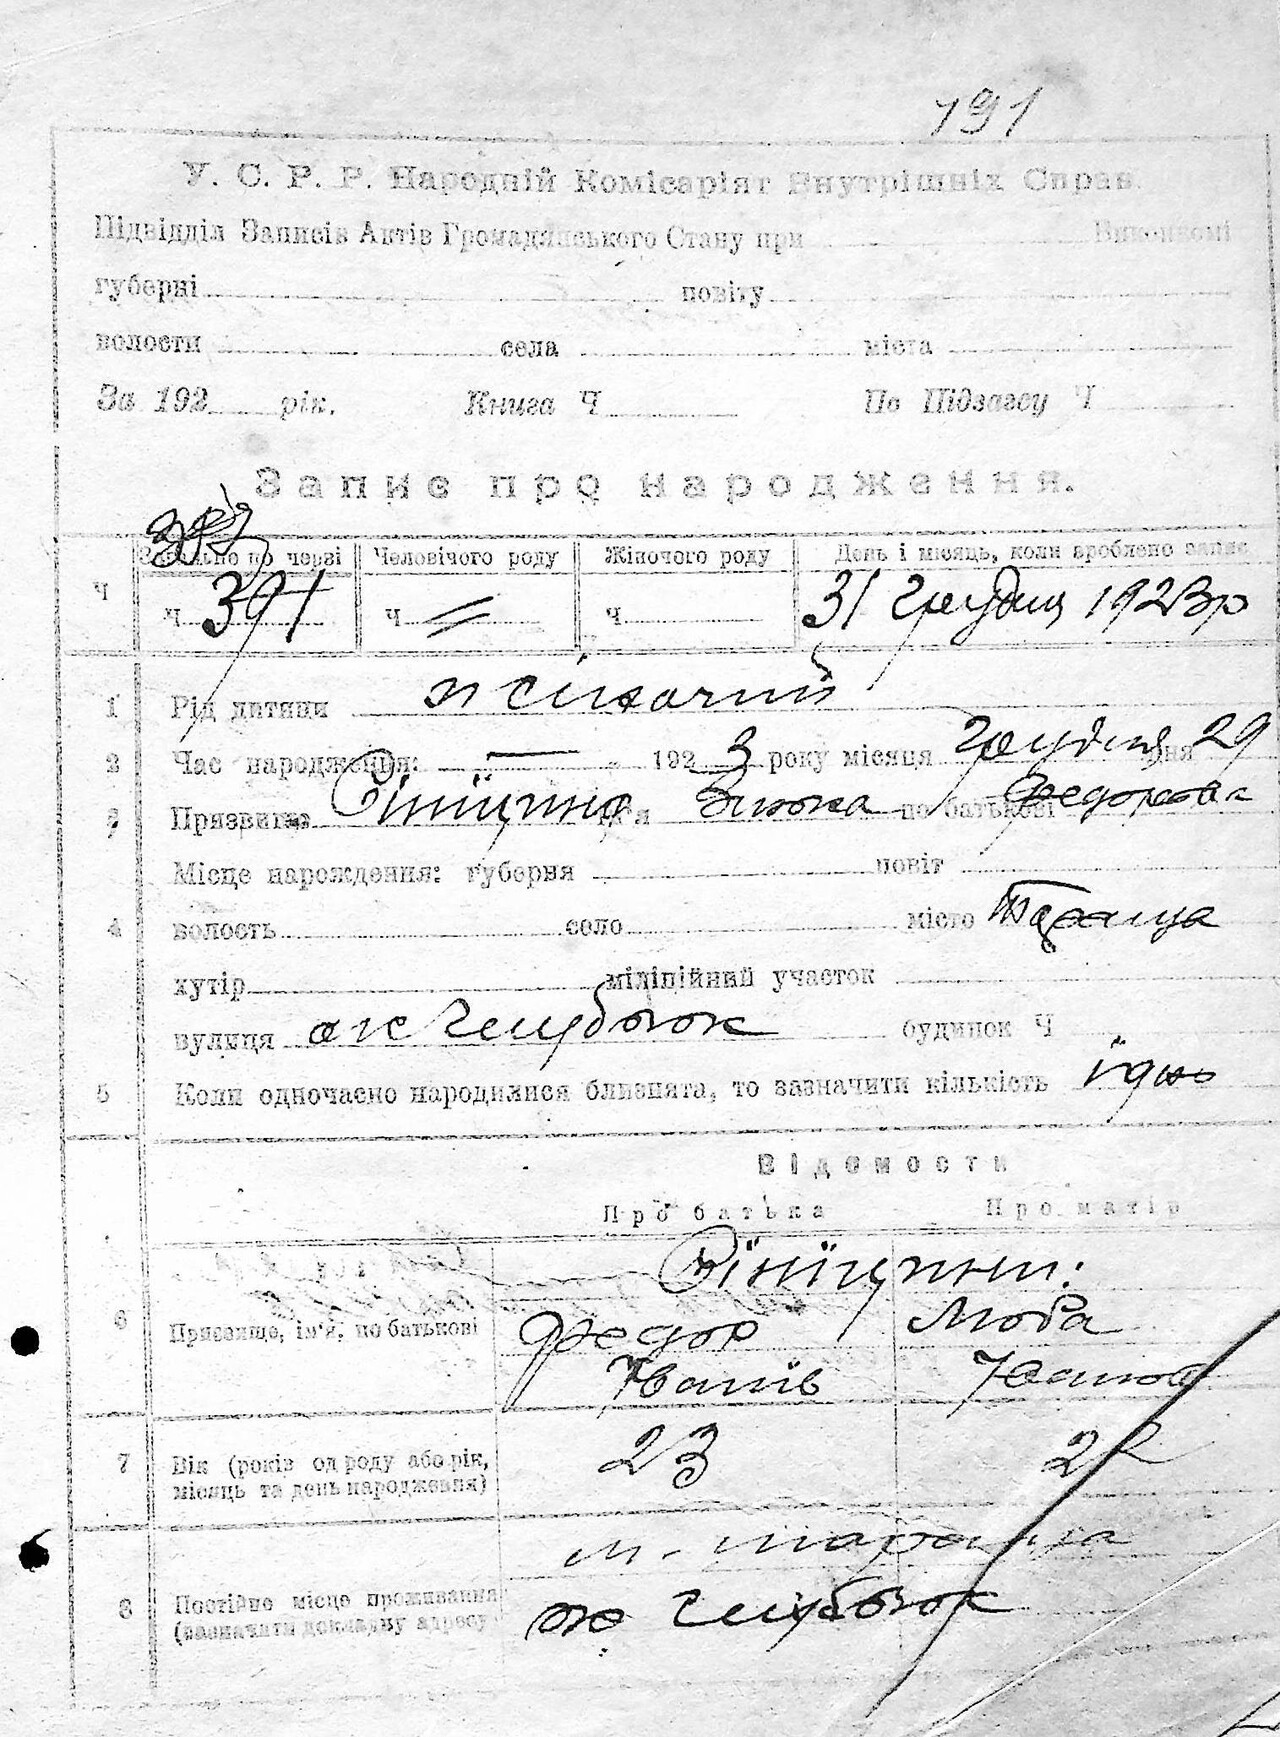 191
У. С. Р. Р. Народній Комісаріят Внутрішніх Справ.
Підвідділ Записів Актів Громадянського Стану при Виконкомі
губерні повіту
волости села міста
За 192 рік. Книга Ч По Підзагсу Ч
Запис про народження.
Ч Загально по черзі Человічого роду Жіночого роду День і місяць, коли зроблено запис
Ч 391 Ч Ч 31 грудня 1923 р
1 Рід дитини жіночий
2 Час народження: 1923 року місяця грудня дня 29
3 Прізвище ім'я по батькові Федорова
Місце народження: губерня повіт
4 волость село місто Тараща
хутір міліційний участок
вулиця будинок Ч
5 Коли одночасно народилися близнята, то зазначити кількість
Відомости
Про батька Про матір
6 Прізвище, ім'я, по батькові Федор Люба
Іванів
7 Вік (років од роду або рік, 23
місяць та день народження)
м. тараща
8 Постійне місце проживання
(зазначити докладну адресу